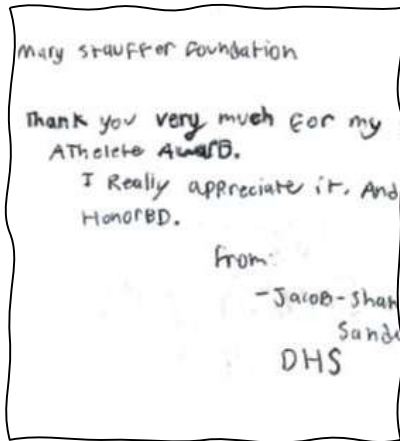 Mary Stauffer Foundation
Thank you very much for my
AThelete AwarD.
I Really appreciate it. And
HonorBD.
From:
-JacoB-Shan
Sand
DHS